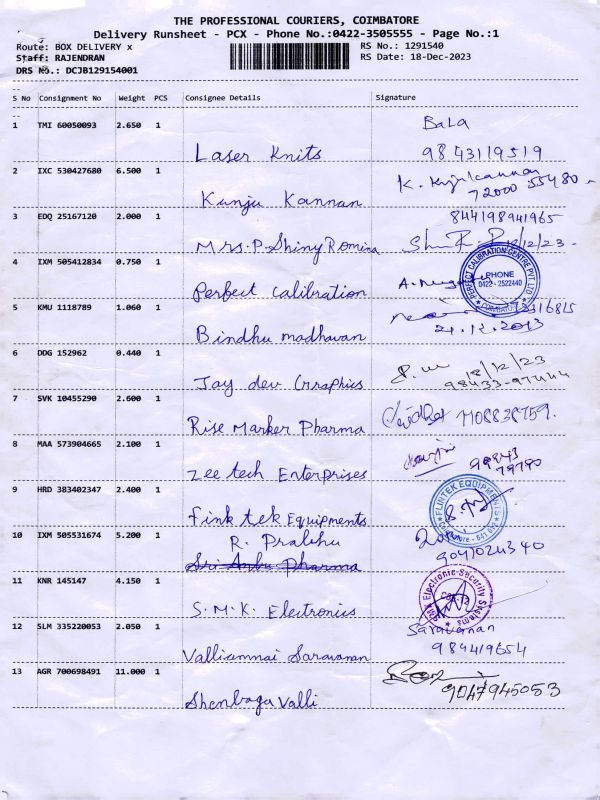 THE PROFESSIONAL COURIERS, COIMBATORE
Delivery Runsheet - PCX - Phone No.:0422-3505555 - Page No.:1
Route: BOX DELIVERY x
RS No.: 1291540
Staff: RAJENDRAN
RS Date: 18-Dec-2023
DRS No.: DCJB129154001
S No Consignment No Weight PCS Consignee Details Signature
1 TMI 60050093 2.650 1 Laser Knits
Bala
9843119519
2 IXC 530427680 6.500 1 Kunju Kannan
72000 55480
3 EDQ 25167120 2.000 1 Mrs.P.Shiny Romina
844198941965
18/12/23
4 IXM 505412834 0.750 1 Perfect Calibration
PERFECT CALIBRATION CENTRE PVT LTD
PHONE
0422 - 2522440
5 KMU 1118789 1.060 1 Bindhu madhavan
6 DDG 152962 0.440 1 Jay dev Graphics
18/12/23
7 SVK 10455290 2.600 1 Rise Marker Pharma
8 MAA 573904665 2.100 1 Zee tech Enterprises
99843
79790
9 HRD 383402347 2.400 1 fink tek Equipments
FLINTEK EQUIPMENTS
10 IXM 505531674 5.200 1 R. Prabhu
Sri Anbu Pharma
11 KNR 145147 4.150 1 S.M.K. Electronics
Electronic Security Systems
12 SLM 335220053 2.050 1 Valliammai Saravanan
Saravanan
989419654
13 AGR 700698491 11.000 1 Shenbaga Valli
9047945053